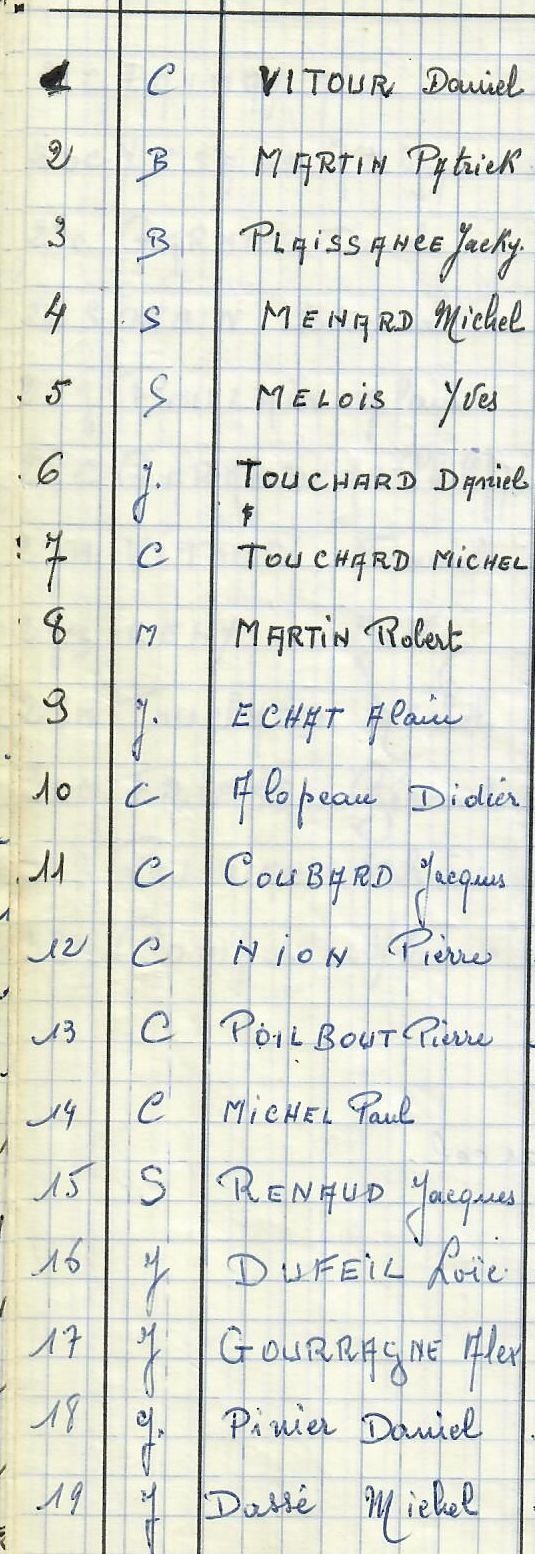 1 C VITOUR Daniel
2 B MARTIN Patrick
3 B PLAISSANCE Jacky.
4 S MENARD Michel
5 S MELOIS Yves
6 J. TOUCHARD Daniel
7 C TOUCHARD MICHEL
8 M MARTIN Robert
9 J. ECHAT Alain
10 C Alopeau Didier
11 C COUBARD Jacques
12 C NION Pierre
13 C POILBOUT Pierre
14 C MICHEL Paul
15 S RENAUD Jacques
16 J DUFEIL Loïc
17 J GOURRAGNE Alex
18 J. Pinier Daniel
19 J Dassé Michel